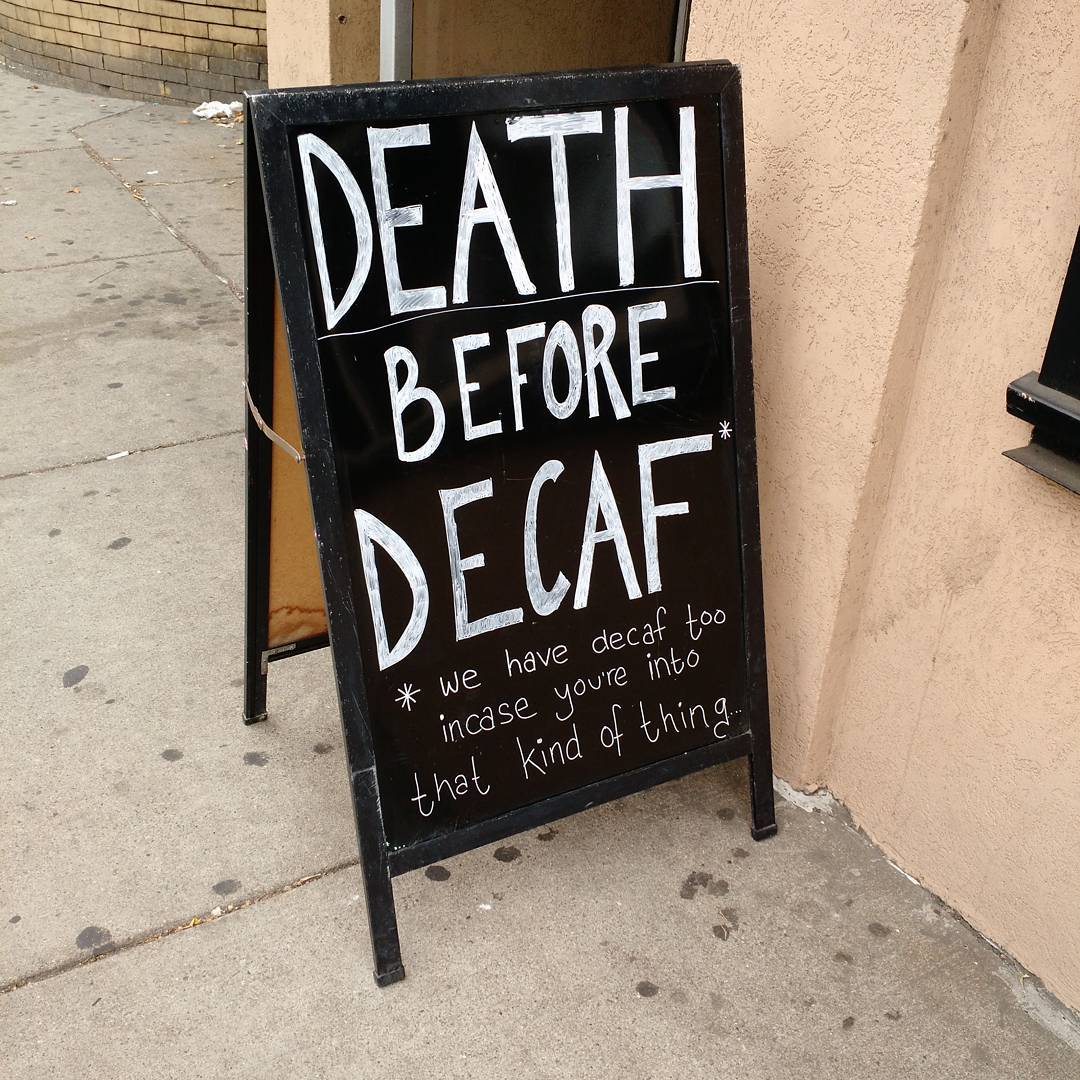 DEATH
BEFORE
DECAF*
* we have decaf too
incase you're into
that kind of thing...